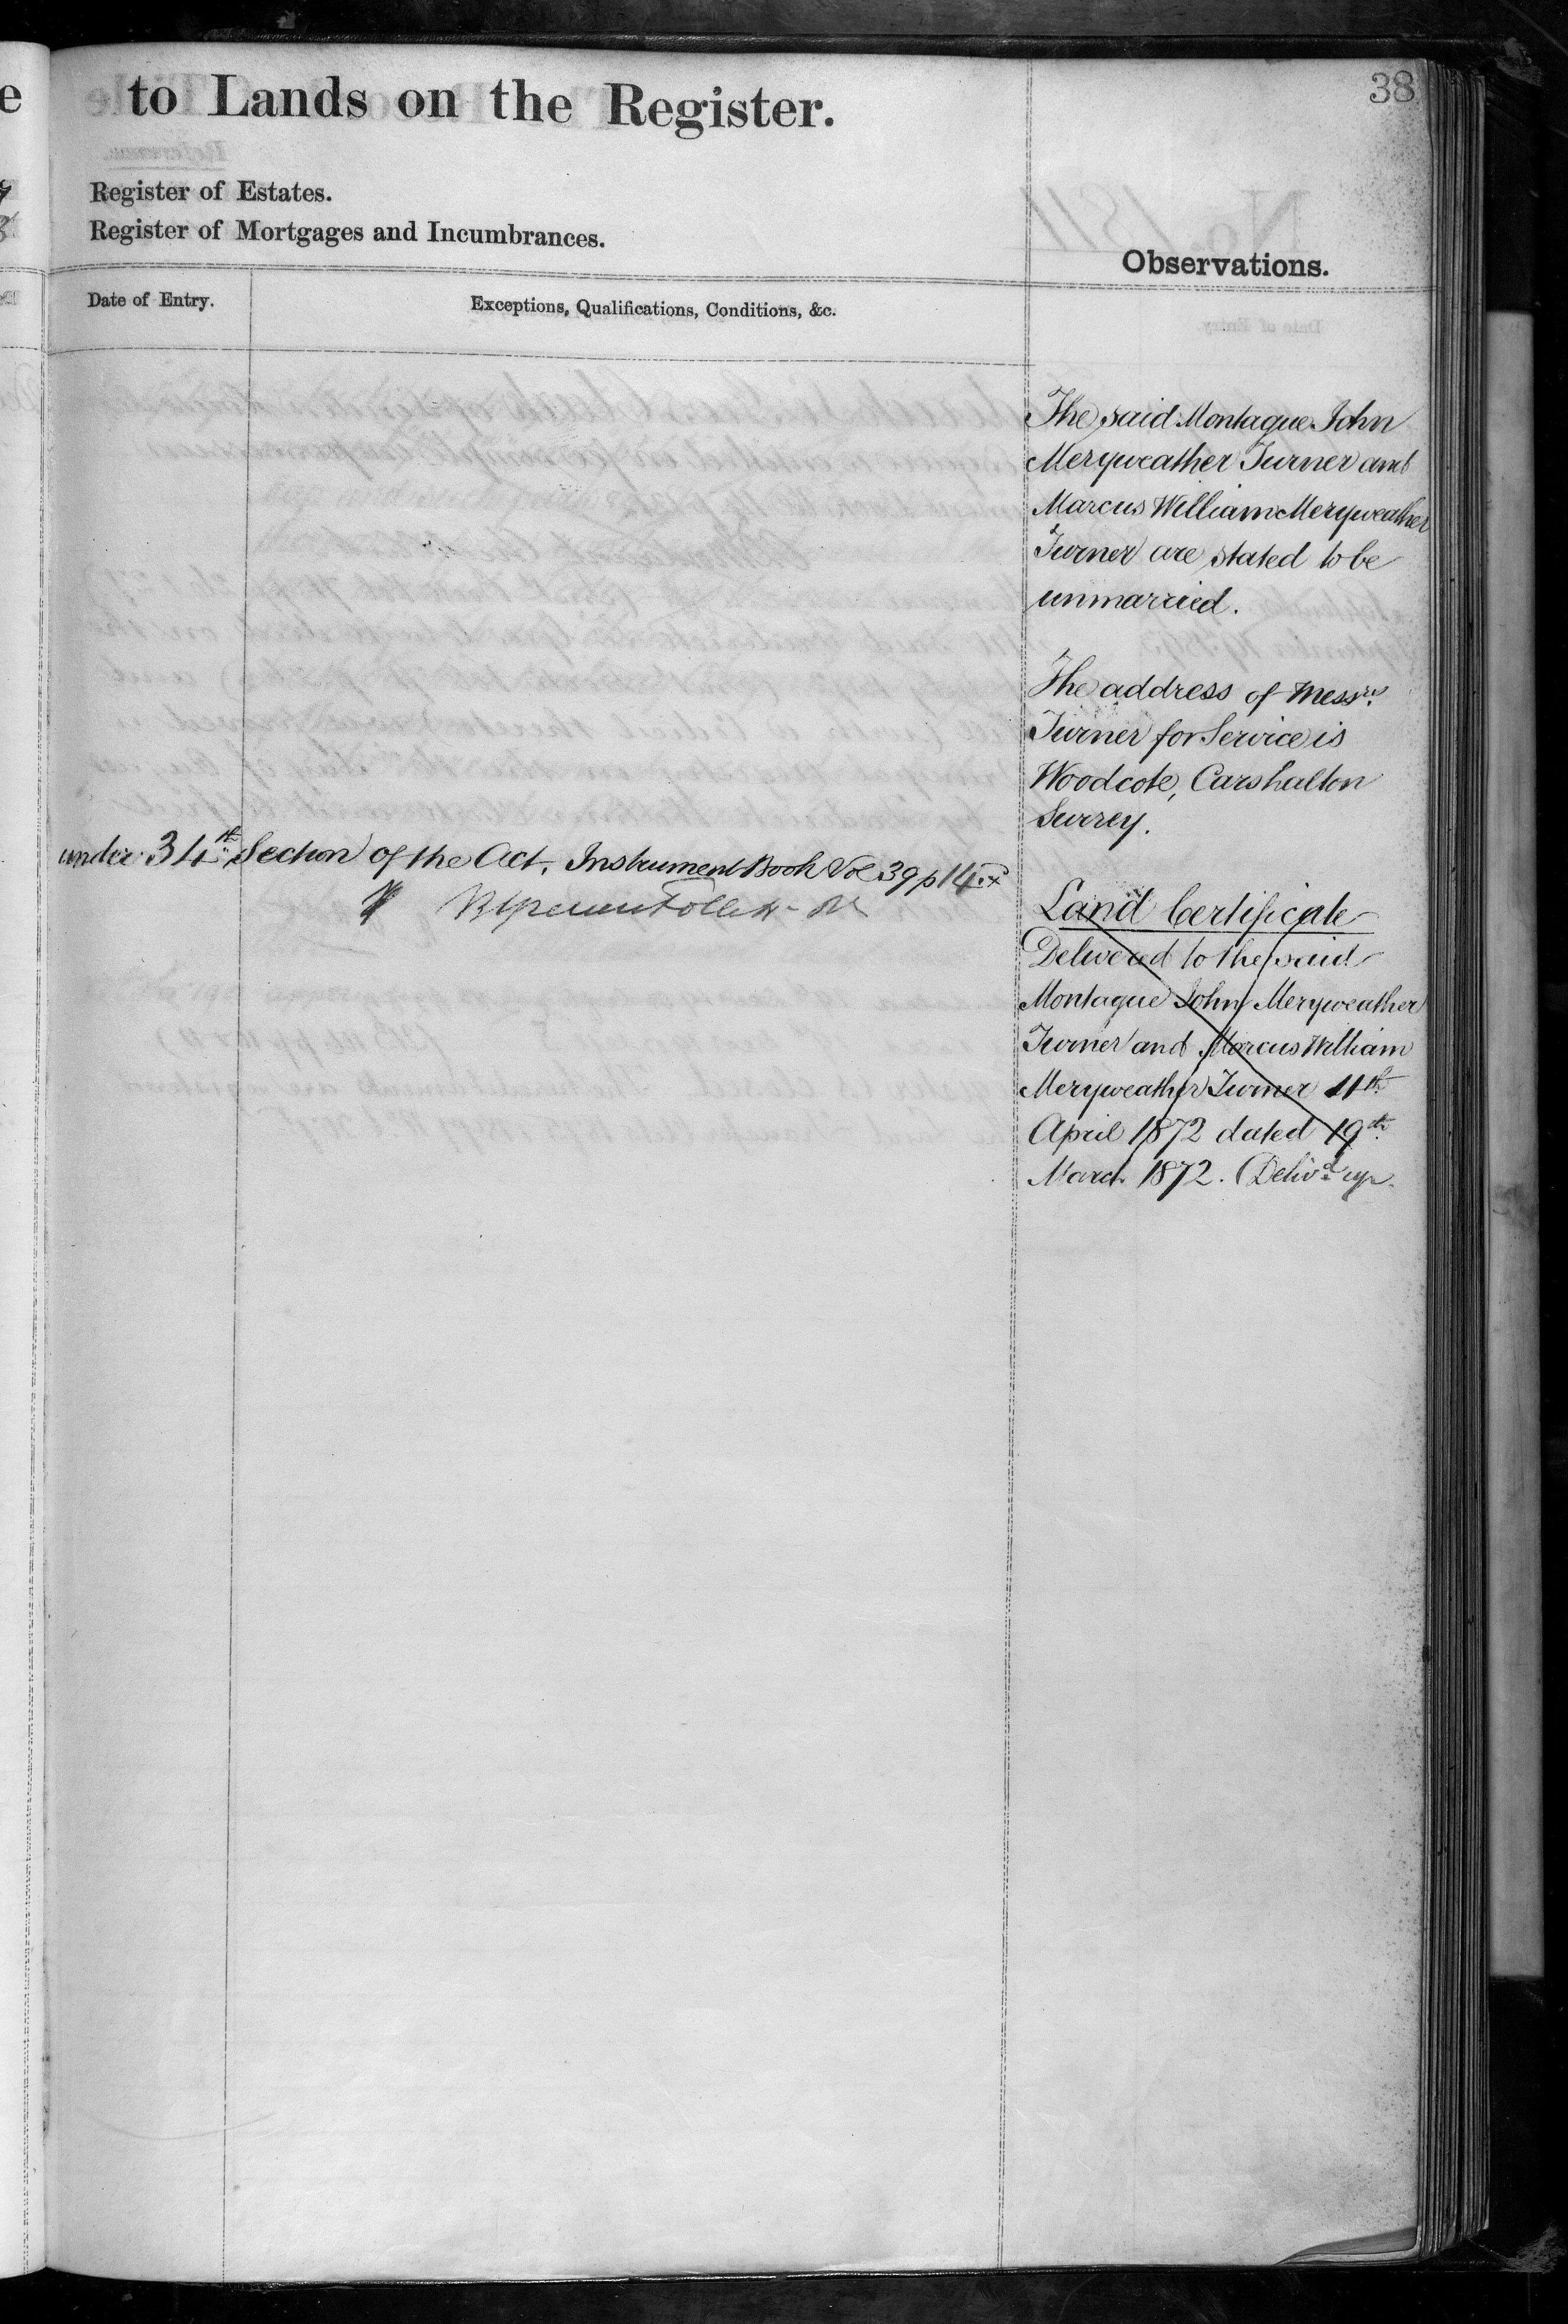 38
to Lands on the Register.
Register of Estates.
Register of Mortgages and Incumbrances.
Observations.
Date of Entry.
Exceptions, Qualifications, Conditions, &c.
The said Montague John
Meryweather Turner and
Marcus William Meryweather
Turner are stated to be
unmarried.
The address of Messrs.
Turner for Service is
Woodcote, Carshalton
Surrey.
under 34th Section of the Act, Instrument Book Vol 39 p 14
Follett
Land Certificate
Delivered to the said
Montague John Meryweather
Turner and Marcus William
Meryweather Turner 11th
April 1872 dated 19th
March 1872. Delivd up.